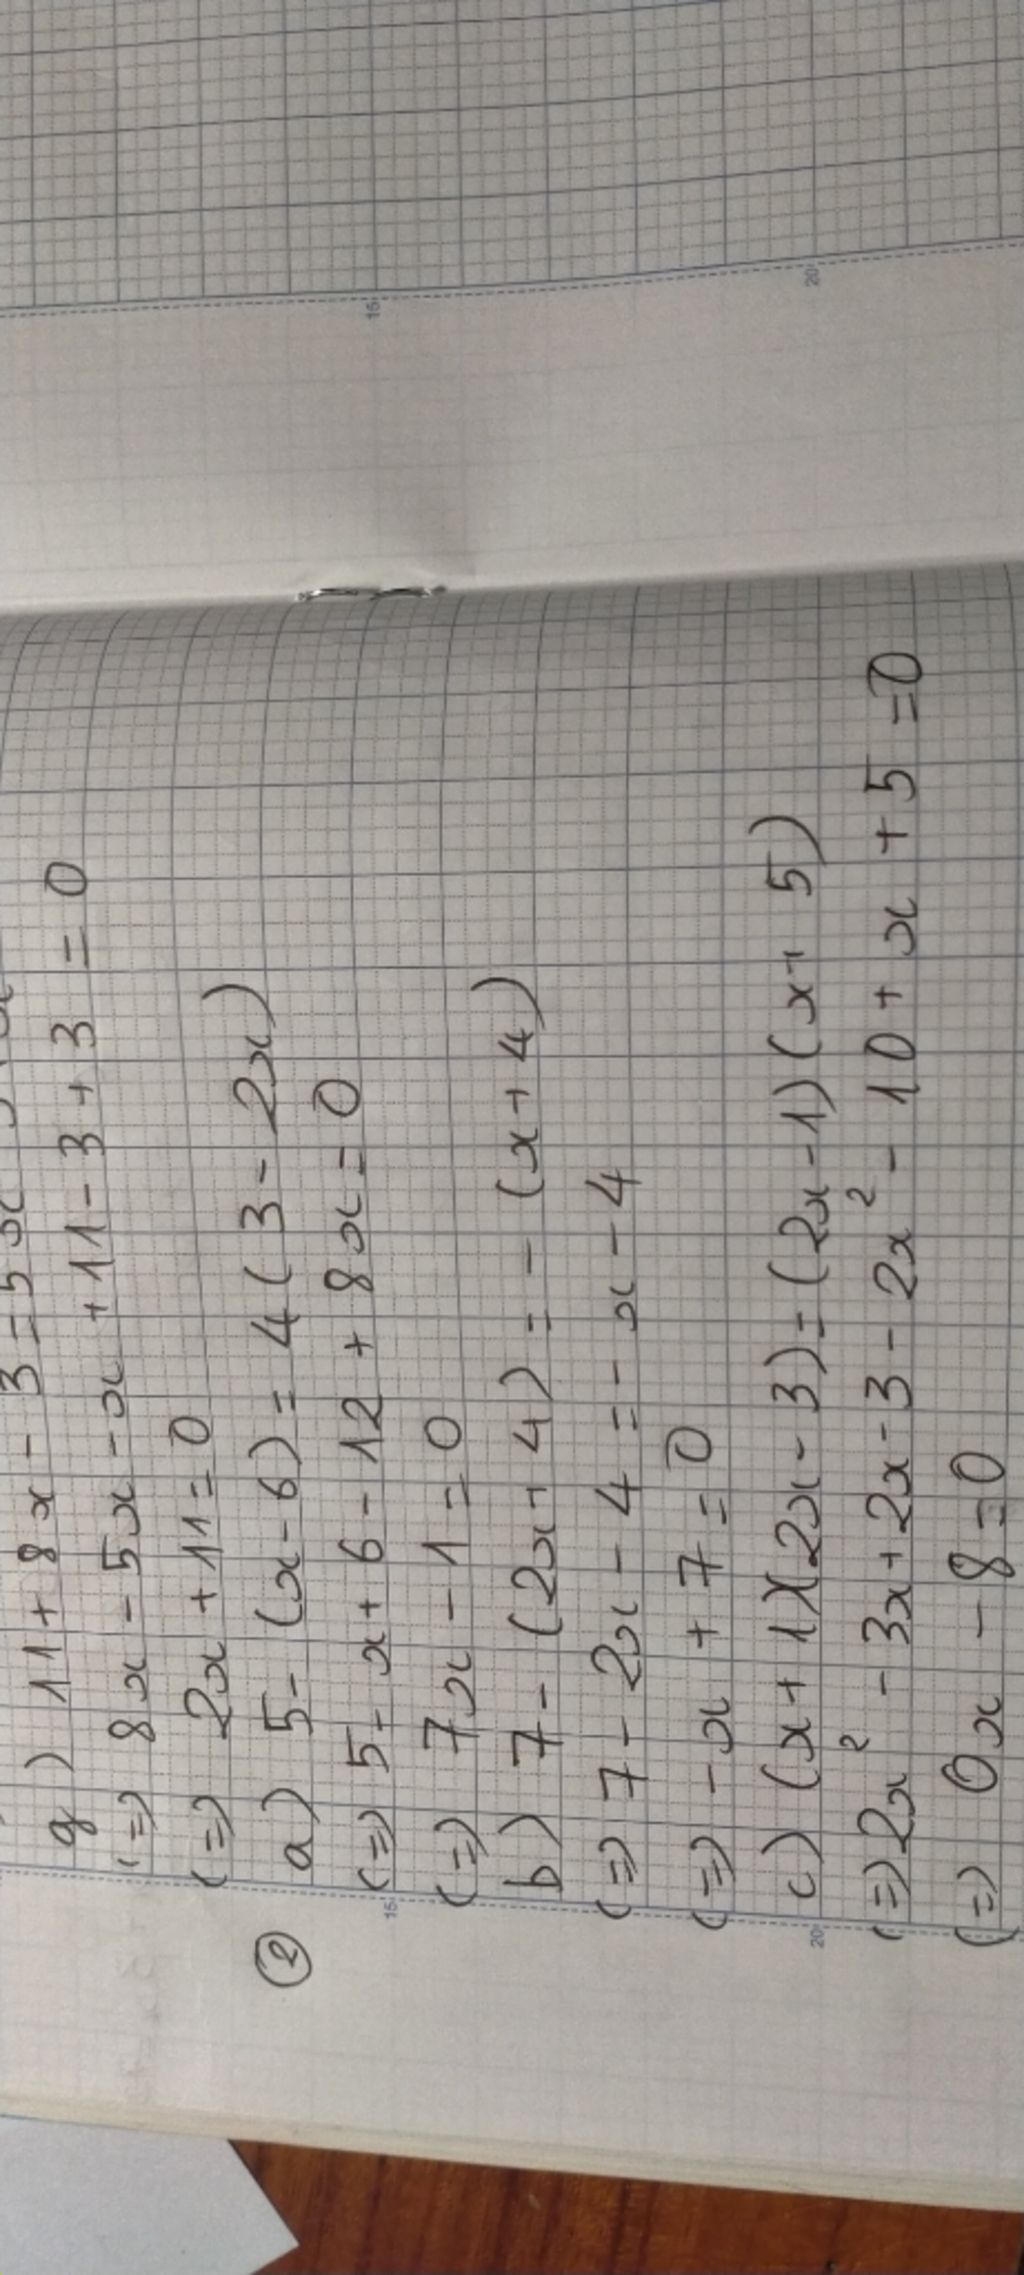 g) 11 + 8x - 3 = 5x
(=) 8x - 5x - x + 11 - 3 + 3 = 0
(=) 2x + 11 = 0
② a) 5 - (x - 6) = 4 (3 - 2x)
(=) 5 - x + 6 - 12 + 8x = 0
(=) 7x - 1 = 0
b) 7 - (2x + 4) = - (x + 4)
(=) 7 - 2x - 4 = - x - 4
(=) - x + 7 = 0
c) (x + 1)(2x - 3) = (2x - 1) (x + 5)
(=) 2x² - 3x + 2x - 3 - 2x² - 10 + x + 5 = 0
(=) 0x - 8 = 0
15
20
15
20